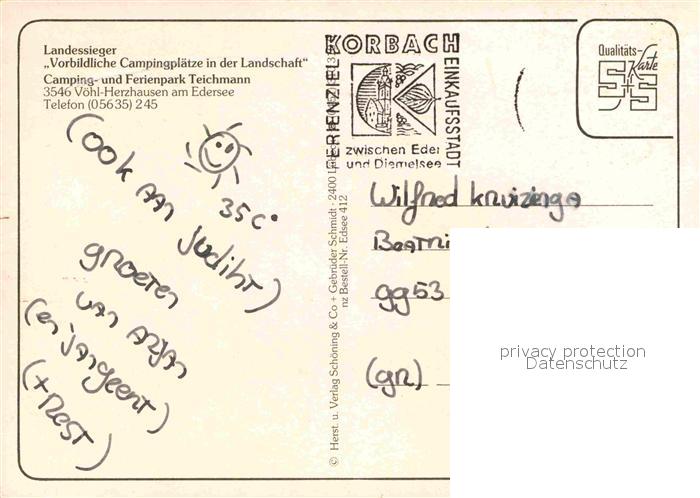 Landessieger
„Vorbildliche Campingplätze in der Landschaft“
Camping- und Ferienpark Teichmann
3546 Vöhl-Herzhausen am Edersee
Telefon (05635) 245
(ook aan
Judiht)
35 C°
groeten
van Arjan
(en jangeert)
(+Rest)
© Herst. u. Verlag Schöning & Co + Gebrüder Schmidt · 2400
nz Bestell-Nr. Edsee 412
KORBACH
FERIENZIEL
EINKAUFSSTADT
zwischen Eder
und Diemelsee
Qualitäts-
Karte
S+S
Wilfred Kruizinga
gg53
(gr)
privacy protection
Datenschutz